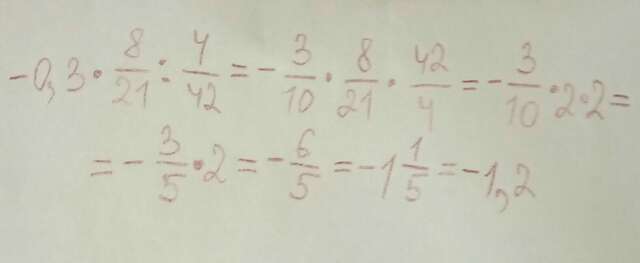 -0,3 · 8/21 : 4/42 = - 3/10 · 8/21 · 42/4 = - 3/10 · 2 · 2 =
= - 3/5 · 2 = - 6/5 = -1 1/5 = -1,2